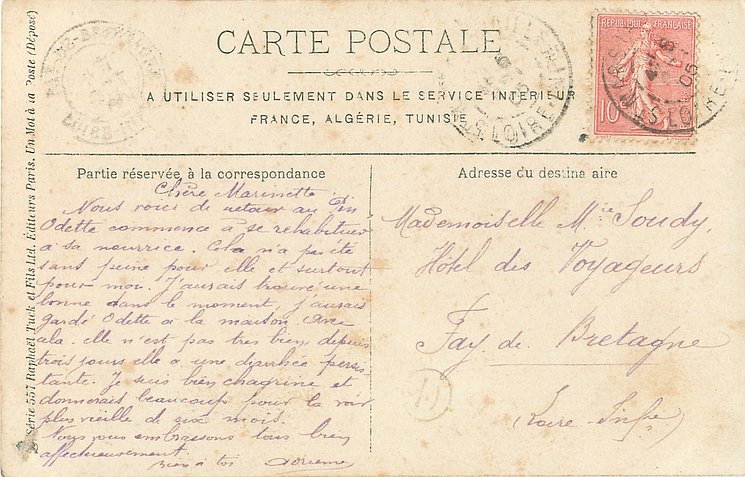 CARTE POSTALE
A UTILISER SEULEMENT DANS LE SERVICE INTÉRIEUR
FRANCE, ALGÉRIE, TUNISIE
RÉPUBLIQUE FRANÇAISE
10
Partie réservée à la correspondance
Chère Marinette
Nous voici de retour au Pin
Odette commence à se rehabituer
à sa nourrice. Cela n'a pas été
sans peine pour elle et surtout
pour moi. J'aurais trouvé une
bonne dans le moment, j'aurais
gardé Odette à la maison. Avec
cela, elle n'est pas très bien depuis
trois jours elle a une diarrhée persis
tante. Je suis bien chagrine et
donnerais beaucoup pour la voir
plus vieille de six mois.
Nous vous embrassons tous bien
affectueusement.
Bien à toi Adrienne
Adresse du destinataire
Mademoiselle M.ie Soudy,
Hôtel des Voyageurs
Fay de Bretagne
Loire Infre
Série 557 Raphaël Tuck et Fils Ltd. Éditeurs Paris. Un Mot à la Poste (Déposé)